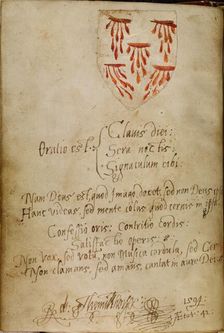 Clavis Diei:
Oratio est Sera noctis:
Signaculum cibi.
Nam Deus est, quod Imago docet, sed non Deus ipsa
Hanc videas, sed mente colas, quod cernis in ipsa.
Confessio oris: Contritio cordis:
Satisfactio operis:
Non vox, sed votu, non musica cordula, sed Cor
Non clamans, sed amans, cantat in aure Dei.
1594
Ætat: 42